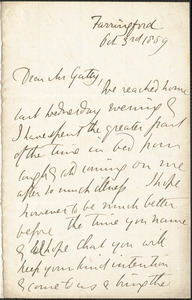 Farringford
Oct 3rd/1859
Dear Mr Gatty,
We reached home
last Wednesday evening &
I have spent the greater part
of the time in bed from
cough & cold coming on me
after so much illness I hope
however to be much better
before the time you name
& hope that you will
keep your kind intention
& come to us & bring the